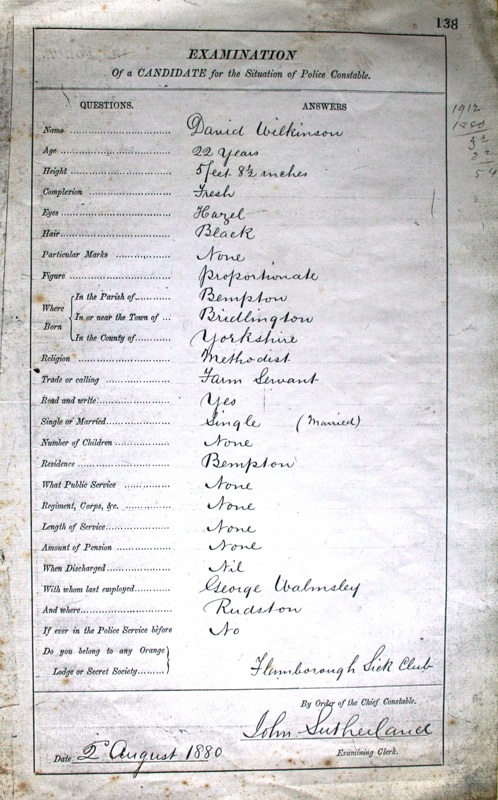 138
EXAMINATION
Of a CANDIDATE for the Situation of Police Constable.
QUESTIONS. ANSWERS
Name David Wilkinson
Age 22 Years
Height 5 feet 8½ inches
Complexion Fresh
Eyes Hazel
Hair Black
Particular Marks None
Figure proportionate
Where Born
In the Parish of Bempton
In or near the Town of Bridlington
In the County of Yorkshire
Religion Methodist
Trade or calling Farm Servant
Read and write Yes
Single or Married Single (Married)
Number of Children None
Residence Bempton
What Public Service None
Regiment, Corps, &c. None
Length of Service None
Amount of Pension None
When Discharged Nil
With whom last employed George Walmsley
And where Rudston
If ever in the Police Service before No
Do you belong to any Orange
Lodge or Secret Society Flamborough Sick Club
By Order of the Chief Constable.
John Sutherland
Examining Clerk.
Date 2d August 1880
1912
1880
32
22
54